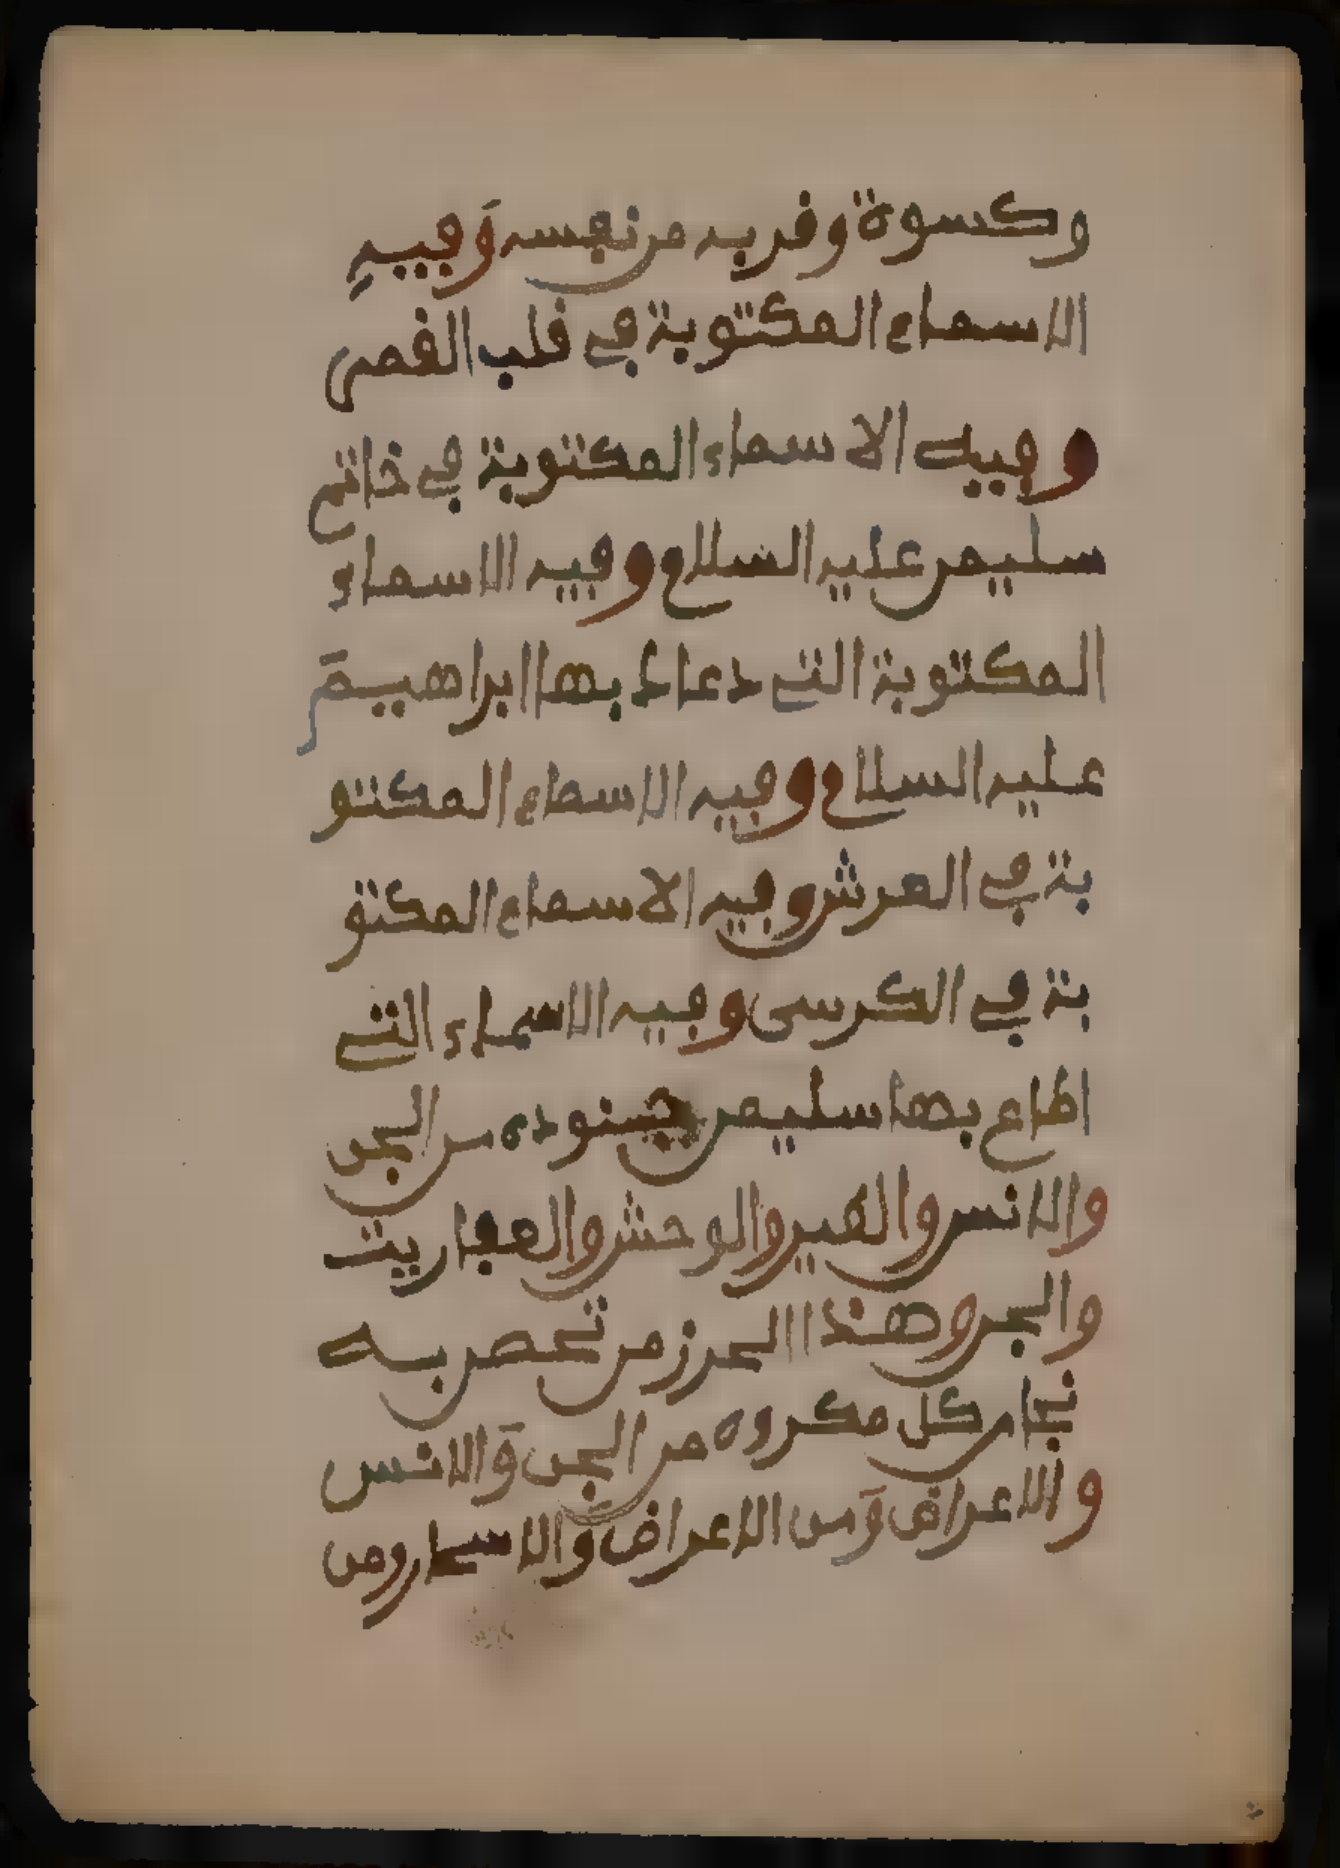 وكسوة وقربه من نفسه وفيه
الاسماء المكتوبة في قلب القمر
وفيه الاسماء المكتوبة في خاتم
سليمن عليه السلام وفيه الاسماء
المكتوبة التي دعا بها ابراهيم
عليه السلام وفيه الاسماء المكتو
بة في العرش وفيه الاسماء المكتو
بة في الكرسى وفيه الاسماء التي
اطاع بها سليمن جنوده من الجن
والانس والطير والوحش والعفاريت
والجن وهذا الحرز من تحصن به
نجا من كل مكروه من الجن والانس
والاعراض ومن الاعراض والاسحار ومن